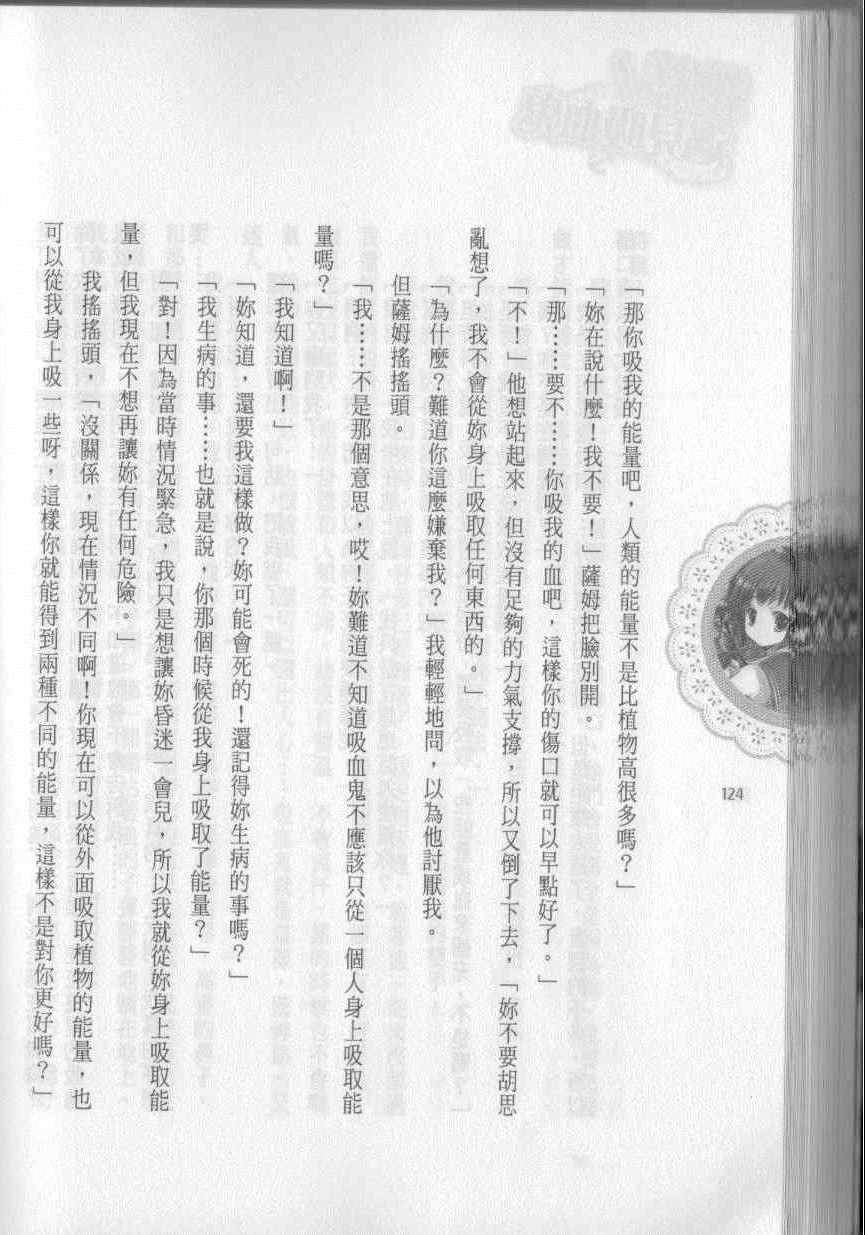 「那你吸我的能量吧，人類的能量不是比植物高很多嗎？」
「妳在說什麼！我不要！」薩姆把臉別開。
「那……要不……你吸我的血吧，這樣你的傷口就可以早點好了。」
「不！」他想站起來，但沒有足夠的力氣支撐，所以又倒了下去，「妳不要胡思
亂想了，我不會從妳身上吸取任何東西的。」
「為什麼？難道你這麼嫌棄我？」我輕輕地問，以為他討厭我。
但薩姆搖搖頭。
「我……不是那個意思，哎！妳難道不知道吸血鬼不應該只從一個人身上吸取能
量嗎？」
「我知道啊！」
「妳知道，還要我這樣做？妳可能會死的！還記得妳生病的事嗎？」
「我生病的事……也就是說，你那個時候從我身上吸取了能量？」
「對！因為當時情況緊急，我只是想讓妳昏迷一會兒，所以我就從妳身上吸取能
量，但我現在不想再讓妳有任何危險。」
我搖搖頭，「沒關係，現在情況不同啊！你現在可以從外面吸取植物的能量，也
可以從我身上吸一些呀，這樣你就能得到兩種不同的能量，這樣不是對你更好嗎？」
124